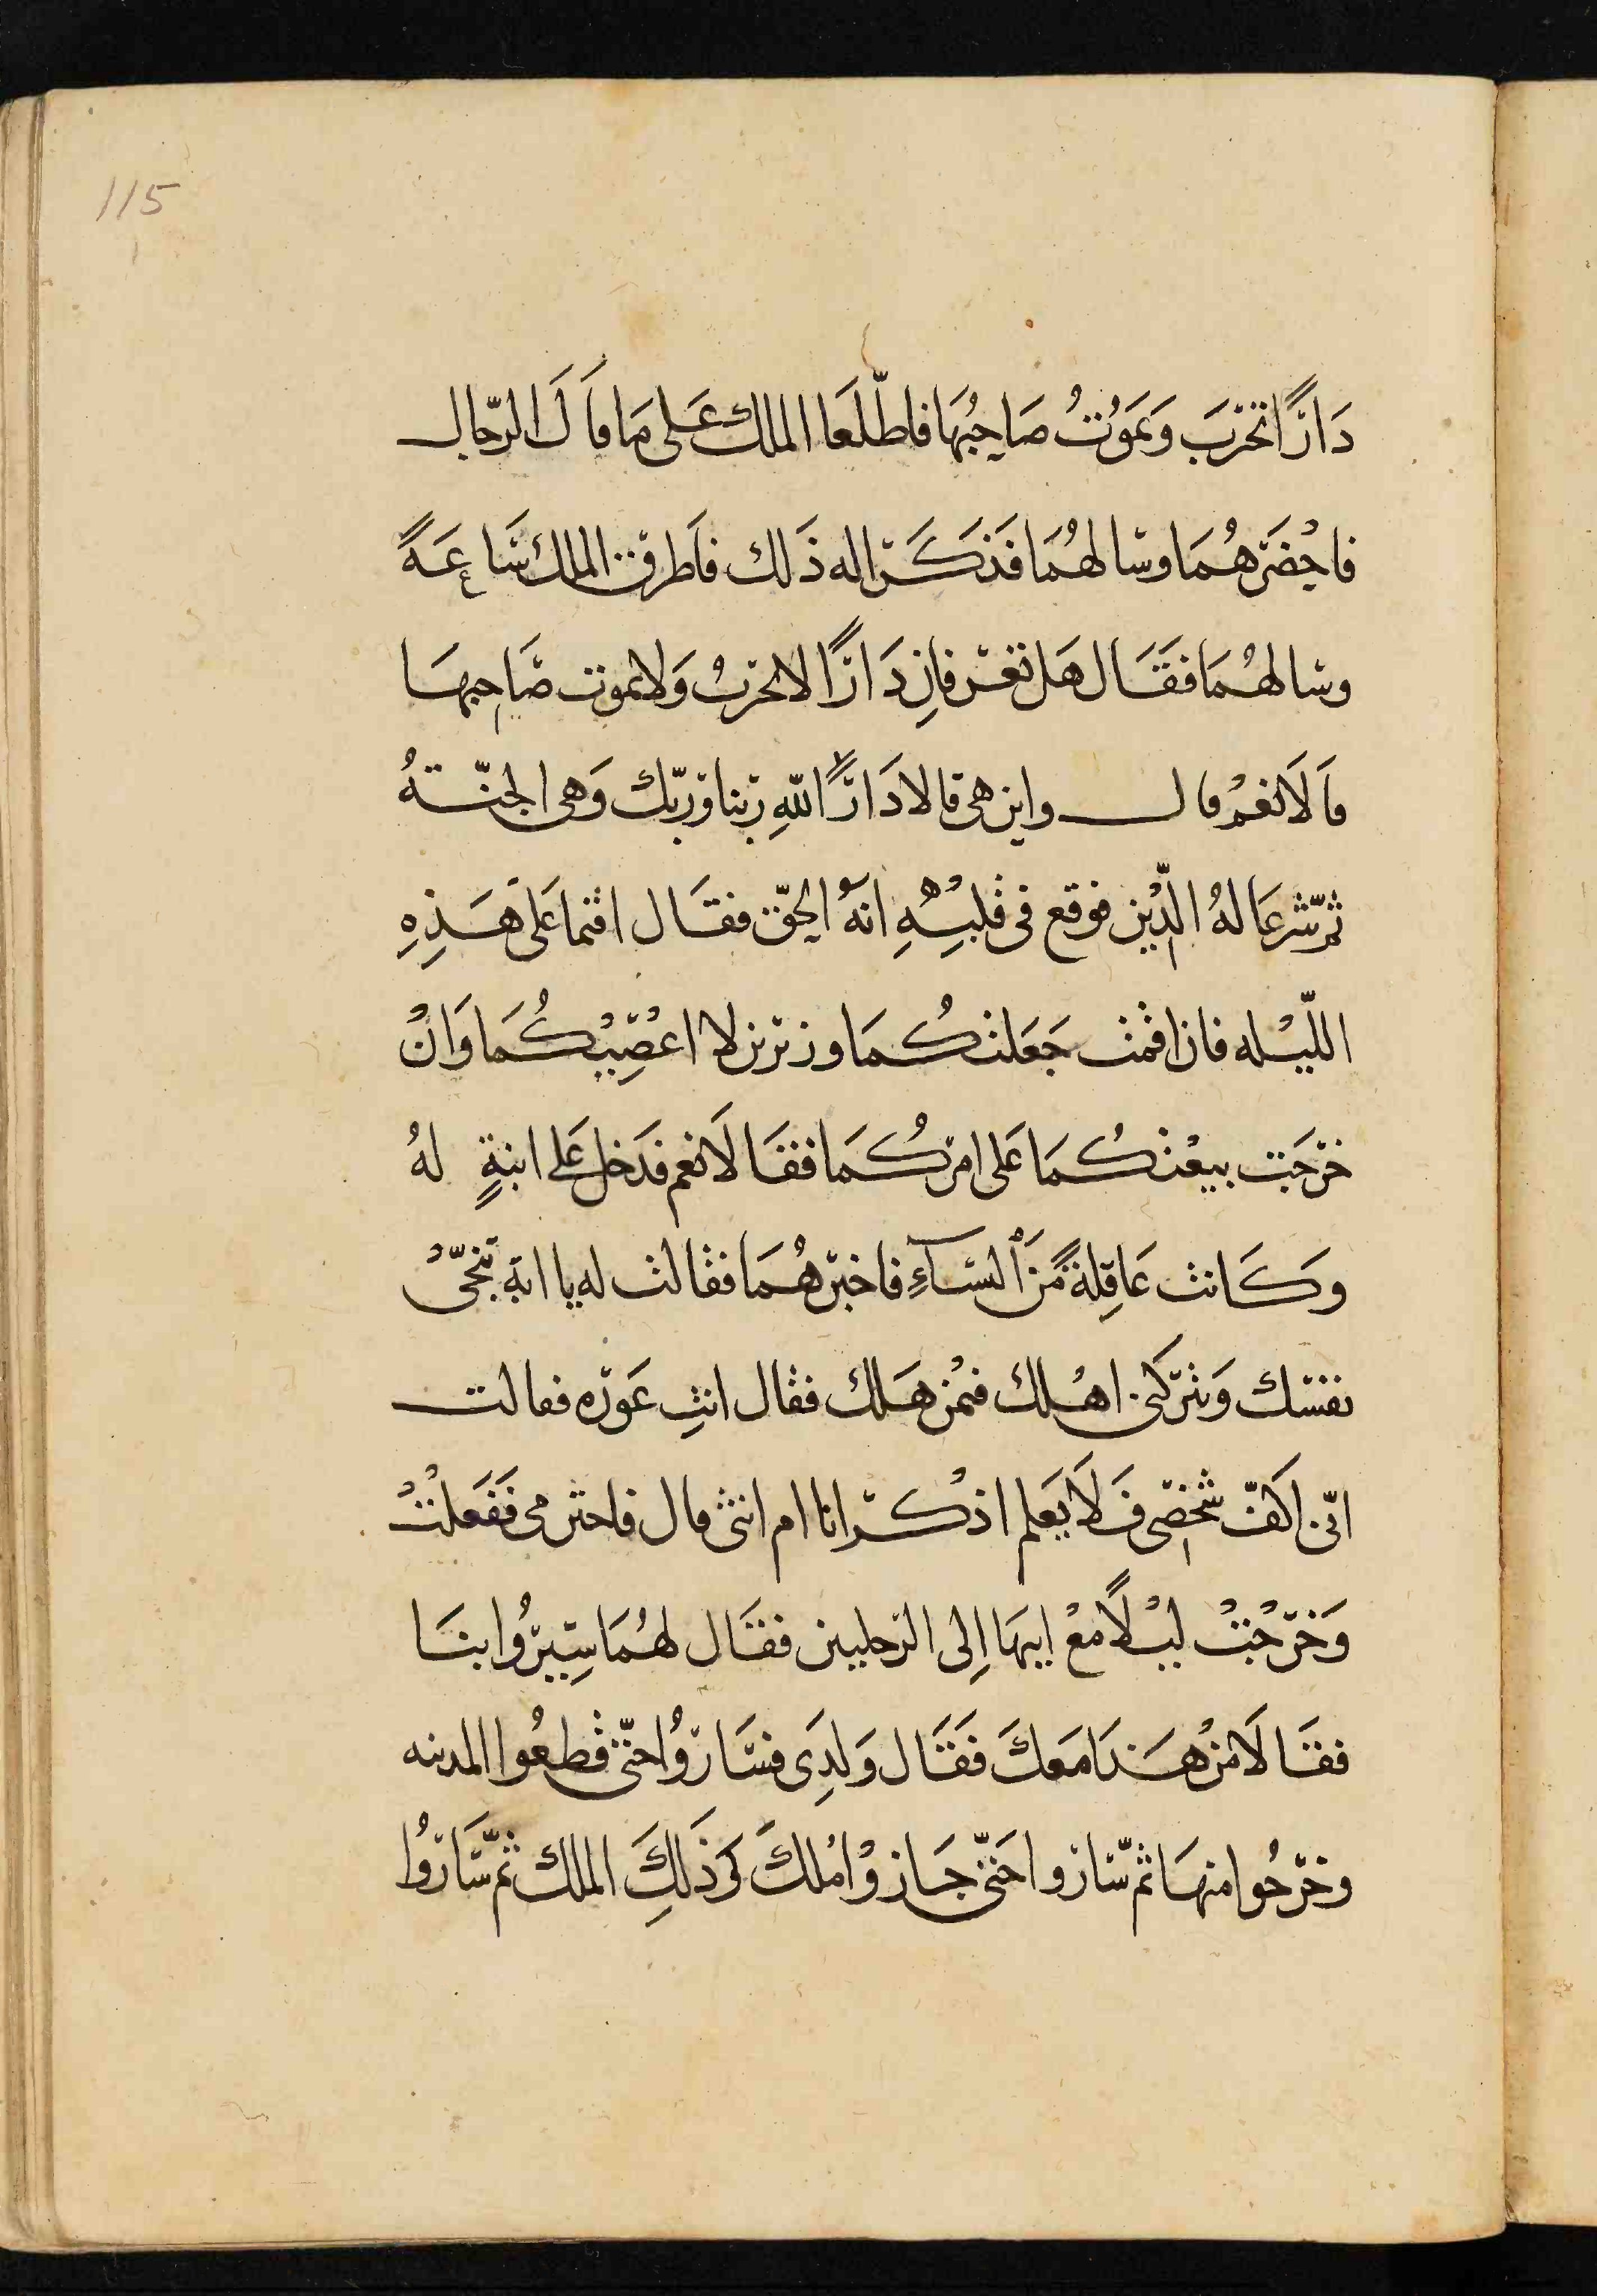 115
دَارًا تخْرَبَ وَيَمَوْتُ صَاحِبُهَا فاطّلَعَا الملك عَلى مَا قاَلَ الرّجال
فاحْضَرَهُمَا وسالهُمَا فَذكَرَا له ذَلك فاَطرق الملك سَاعَةً
وسالهُمَا فقَال هَل تعْرفانِ دَارًا لا تخرَبُ وَلا يموت صَاحِبهَا
قاَلاَ نعَمْ قال واين هى قالا دَارًا اللّهِ ربّنا وَربّك وَهى الجنّةُ
ثمّ شرعَا لهُ الدّيْن فوقع فى قلبِهِ انهُ الحقّ فقَال اقيما عَلى هَذِهِ
اللّيْله فان اقمت جَعَلتكُمَا وزيرين لا اعْصِيْكُمَا وَانْ
خرَجَت بيعْتكُمَا عَلى امركُمَا فقَالاَ نعم فدَخل عَلى ابنةٍ لهُ
وَكَانت عَاقِلةً مّنَ النسَآءِ فاخبرهُمَا فقالت له يا ابة تنجّىْ
نفسَك وَتتركنى اهْلك فمْن هَلك فقال انتِ عَورَه فقالت
انّى اكفّ شخْصى فَلاَ يعَلم اذكَر انا ام انثى قال فاحترمى ففَعَلتْ
وَخرَجْتْ ليْلاً معْ ابيهَا اِلى الرّجلين فقَال لهُمَا سِيْرُوا بنَا
فقَالاَ مْن هَذا مَعَكَ فقَال وَلدِى فسَارُوا حتّى قطعُوا المدينه
وخرجُوا منهَا ثمّ سَاروا حَتّى جَازوْا مُلكَ ذَلِكَ الملك ثمّ سَارُوا